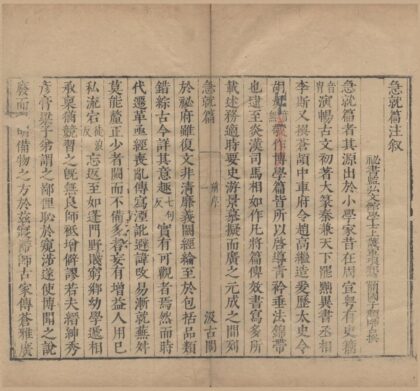 急就篇注叙
祕書監弘文館學士上護軍琅邪開國子顏師古撰
急就篇者其源出於小學家昔在周宣粤有史籀
演暢古文初著大篆秦兼天下罷黜異書丞相
李斯又撰蒼頡中車府令趙高繼造爰歷太史令
胡毋敬作博學篇皆所以啓導青衿垂法錦帶
也逮至炎漢司馬相如作凡將篇俾效書寫多所
載述務適時要史游景慕擬而廣之元成之間列
急就篇 序 汲古閣
於祕府雖復文非清靡義闕經綸至於包括品類
錯綜古今詳其意趣七句反實有可觀者焉然而時
代遷革亟經喪亂傳寫湮訛避諱改易漸就蕪舛
莫能釐正少者闕而不備多者妄有增益人用己
私流宕反忘返至如蓬門野賤窮鄉幼學遞相
承稟猶競習之旣無良師祗增僻謬若夫縉紳秀
彦膏粱子弟謂之鄙俚恥於窺涉遂使博聞之說
廢而明備物之方於茲寢師古家傳蒼雅廣